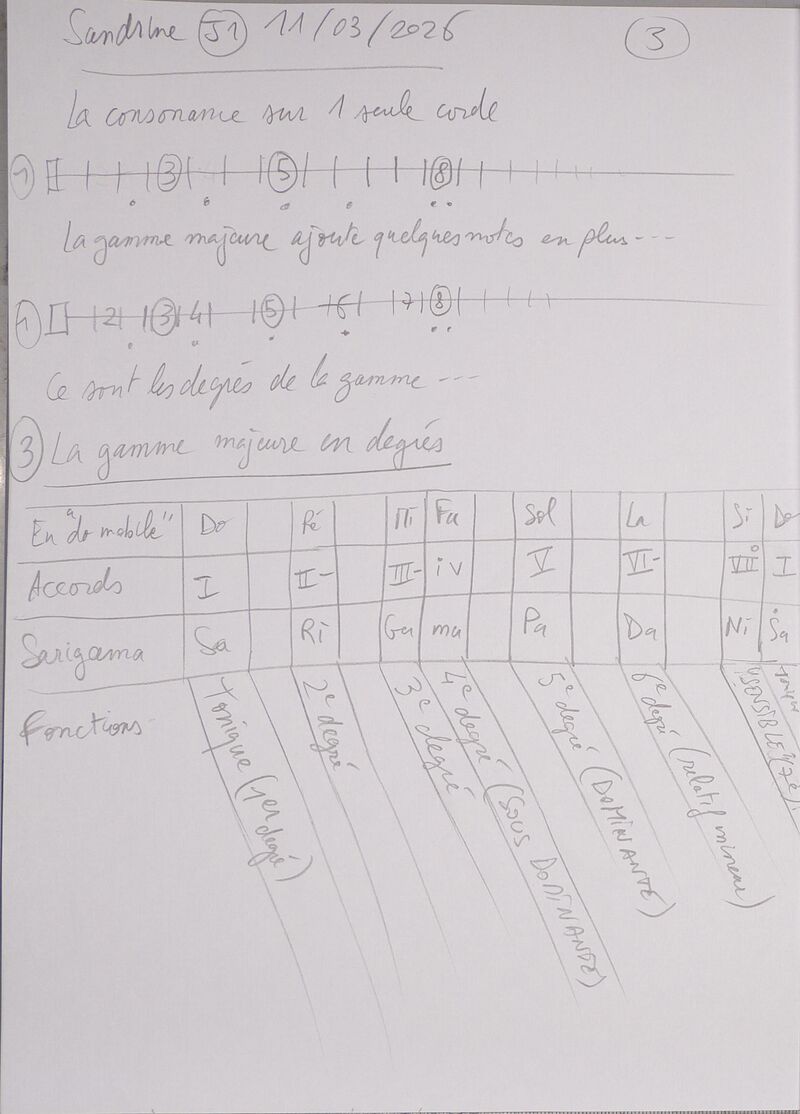 Sandrine J1 11/03/2026 3
La consonance sur 1 seule corde
1 3 5 8
La gamme majeure ajoute quelques notes en plus ---
1 2 3 4 5 6 7 8
Ce sont les degrés de la gamme ---
3 La gamme majeure en degrés
En "do mobile" Do Ré Mi Fa Sol La Si Do
Accords I II- III- iv V VI- VII° I
Sarigama Sa Ri Ga ma Pa Da Ni Ṡa
Fonctions
Tonique (1er degré)
2e degré
3e degré
4e degré (SOUS DOMINANTE)
5e degré (DOMINANTE)
6e degré (relatif mineur)
"SENSIBLE" (7e)